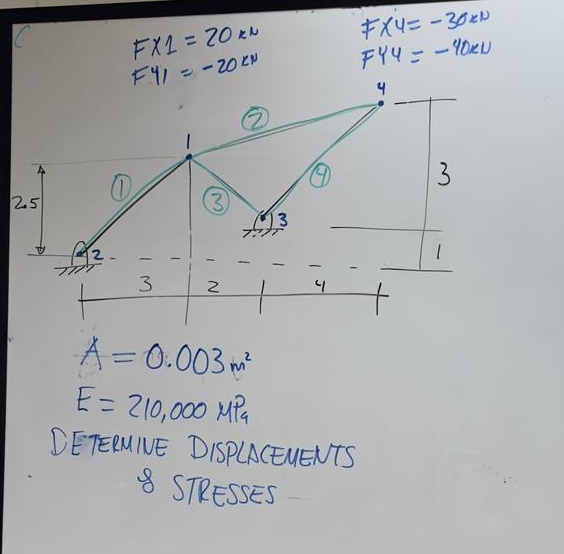 C
FX1 = 20 KN
FY1 = -20 KN
FX4 = -30 KN
FY4 = -40 KN
4
2
1
1
3
4
3
2.5
3
2
1
3
2
4
A = 0.003 m²
E = 210,000 MPa
DETERMINE DISPLACEMENTS
& STRESSES